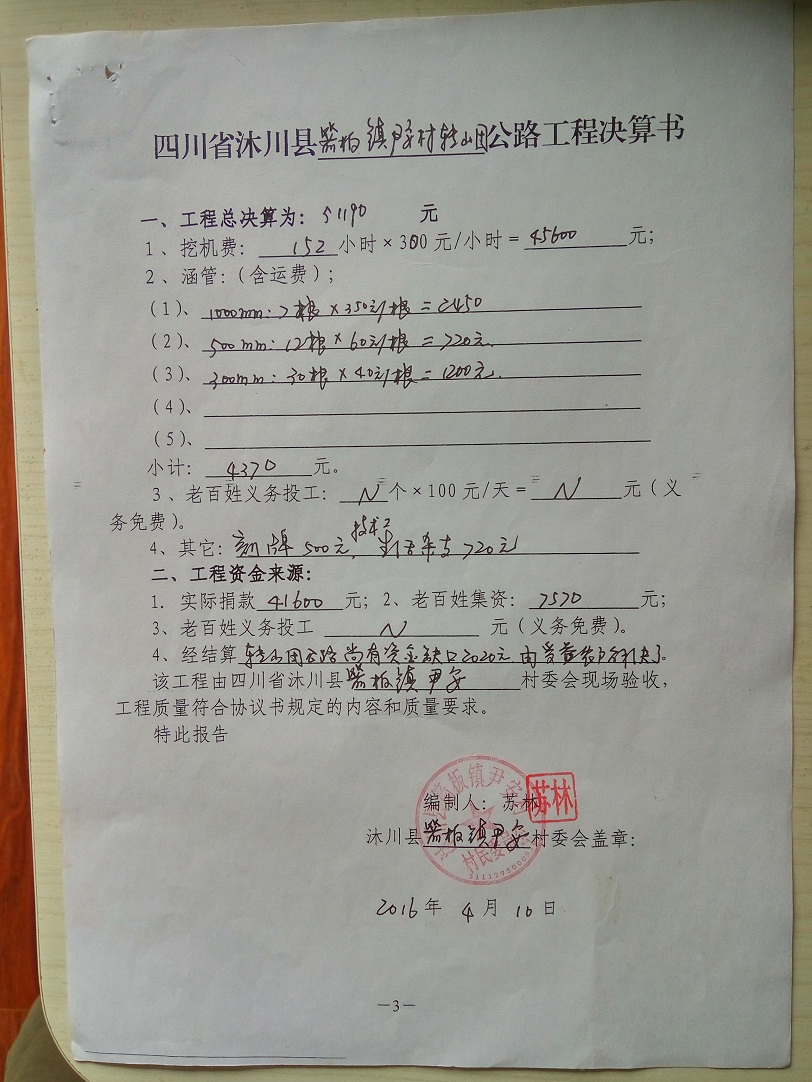 四川省沐川县箭板镇尹家村转山团公路工程决算书
一、工程总决算为：51190 元
1、挖机费：152小时×300元/小时=45600元；
2、涵管：（含运费）；
（1）、1000mm：7根×350元/根=2450
（2）、500mm：12根×60元/根=720元.
（3）、300mm：30根×40元/根=1200元.
（4）、
（5）、
小计：4370元。
3、老百姓义务投工：N个×100元/天=N元（义
务免费）。
4、其它：刻牌500元，技术工生活杂支720元
二、工程资金来源：
1. 实际捐款41600元；2、老百姓集资：7570元；
3、老百姓义务投工 N 元（义务免费）。
4、经结算转山团公路尚有资金缺口2020元，由受益
该工程由四川省沐川县箭板镇尹家村委会现场验收，
工程质量符合协议书规定的内容和质量要求。
特此报告
编制人：苏林
苏林
沐川县箭板镇尹家村委会盖章：
村民委员会
2016年4月10日
—3—